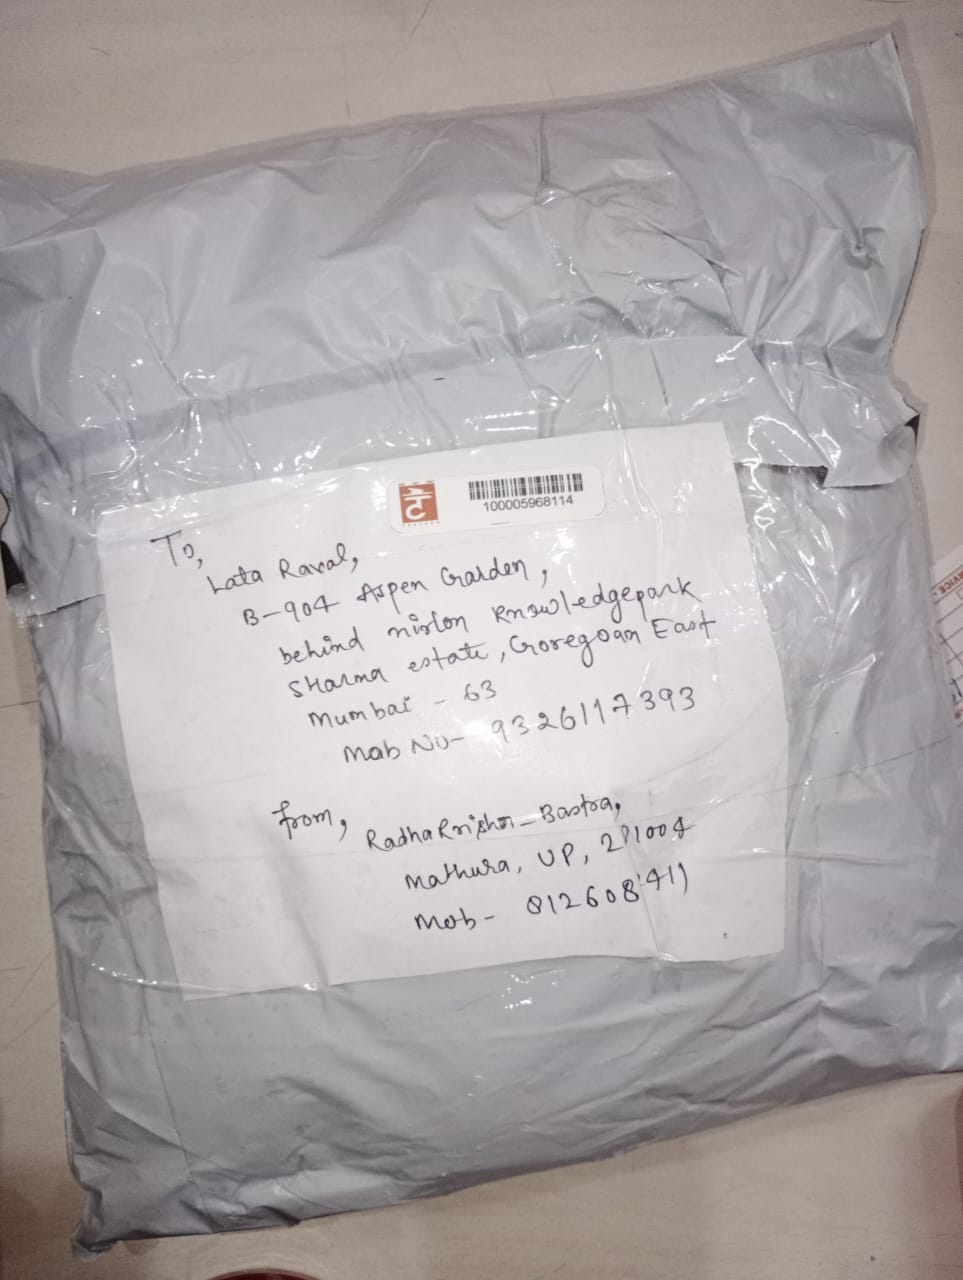 100005968114
To,
Lata Raval,
B-904 Aspen Garden,
behind nirlon knowledgepark
sharma estate, Goregoan East
Mumbai - 63
Mob No- 9326117393
from,
RadhaKrishn-Bastra,
Mathura, UP, 281004
Mob- 8126081411